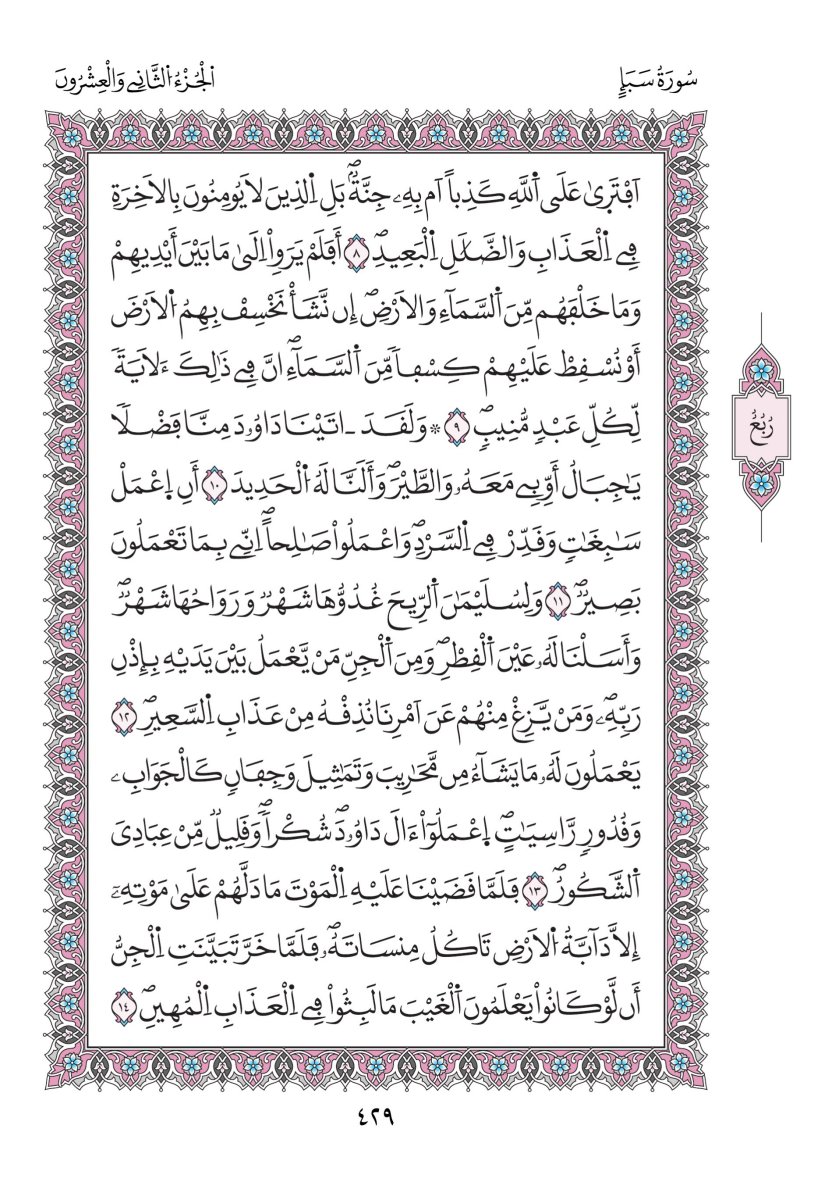 سُورَةُ سَبَإٍ
اَلْجُزْءُ الثَّانِے وَالْعِشْرُونَ
اَفْتَر۪يٰ عَلَي اَ۬للَّهِ كَذِباً اَم بِهِۦ جِنَّةُۢۖ بَلِ اِ۬لذِينَ لَا يُومِنُونَ بِالَاخِرَةِ
فِے اِ۬لْعَذَابِ وَالضَّلَٰلِ اِ۬لْبَعِيدِۖ ٨ أَفَلَمْ يَرَوِاْ اِلَيٰ مَا بَيْنَ أَيْدِيهِمْ
وَمَا خَلْفَهُم مِّنَ اَ۬لسَّمَآءِ وَالَارْضِۖ إِن نَّشَأْ نَخْسِفْ بِهِمُ اُ۬لَارْضَ
أَوْ نُسْقِطْ عَلَيْهِمْ كِسْفاٗ مِّنَ اَ۬لسَّمَآءِۖ اِنَّ فِے ذَٰلِكَ ءَلَايَةٗ
لِّكُلِّ عَبْدٖ مُّنِيبٖۖ ٩ ۞ وَلَقَدَ ـ اتَيْنَا دَاوُۥدَ مِنَّا فَضْلاٗ
يَٰجِبَالُ أَوِّبِے مَعَهُۥ وَالطَّيْرَۖ وَأَلَنَّا لَهُ اُ۬لْحَدِيدَ ١٠ أَنِ اِعْمَلْ
سَٰبِغَٰتٖ وَقَدِّرْ فِے اِ۬لسَّرْدِۖ وَاعْمَلُواْ صَٰلِحاًۖ اِنِّے بِمَا تَعْمَلُونَ
بَصِيرٞۖ ١١ وَلِسُلَيْمَٰنَ اَ۬لرِّيحَ غُدُوُّهَا شَهْرٞ وَرَوَاحُهَا شَهْرٞۖ
وَأَسَلْنَا لَهُۥ عَيْنَ اَ۬لْقِطْرِۖ وَمِنَ اَ۬لْجِنِّ مَنْ يَّعْمَلُ بَيْنَ يَدَيْهِ بِإِذْنِ
رَبِّهِۦۖ وَمَنْ يَّزِغْ مِنْهُمْ عَنَ اَمْرِنَا نُذِقْهُ مِنْ عَذَابِ اِ۬لسَّعِيرِۖ ١٢
يَعْمَلُونَ لَهُۥ مَا يَشَآءُ مِن مَّحَٰرِيبَ وَتَمَٰثِيلَ وَجِفَانٖ كَالْجَوَابِۦ
وَقُدُورٖ رَّاسِيَٰتٍۖ اِعْمَلُوٓاْ ءَالَ دَاوُۥدَ شُكْراٗۖ وَقَلِيلٞ مِّنْ عِبَادِيَ
اَ۬لشَّكُورُۖ ١٣ فَلَمَّا قَضَيْنَا عَلَيْهِ اِ۬لْمَوْتَ مَا دَلَّهُمْ عَلَيٰ مَوْتِهِۦٓ
إِلَّا دَآبَّةُ اُ۬لَارْضِ تَاكُلُ مِنسَاتَهُۥۖ فَلَمَّا خَرَّ تَبَيَّنَتِ اِ۬لْجِنُّ
أَن لَّوْ كَانُواْ يَعْلَمُونَ اَ۬لْغَيْبَ مَا لَبِثُواْ فِے اِ۬لْعَذَابِ اِ۬لْمُهِينِۖ ١٤
رُبُعُ
٤٢٩